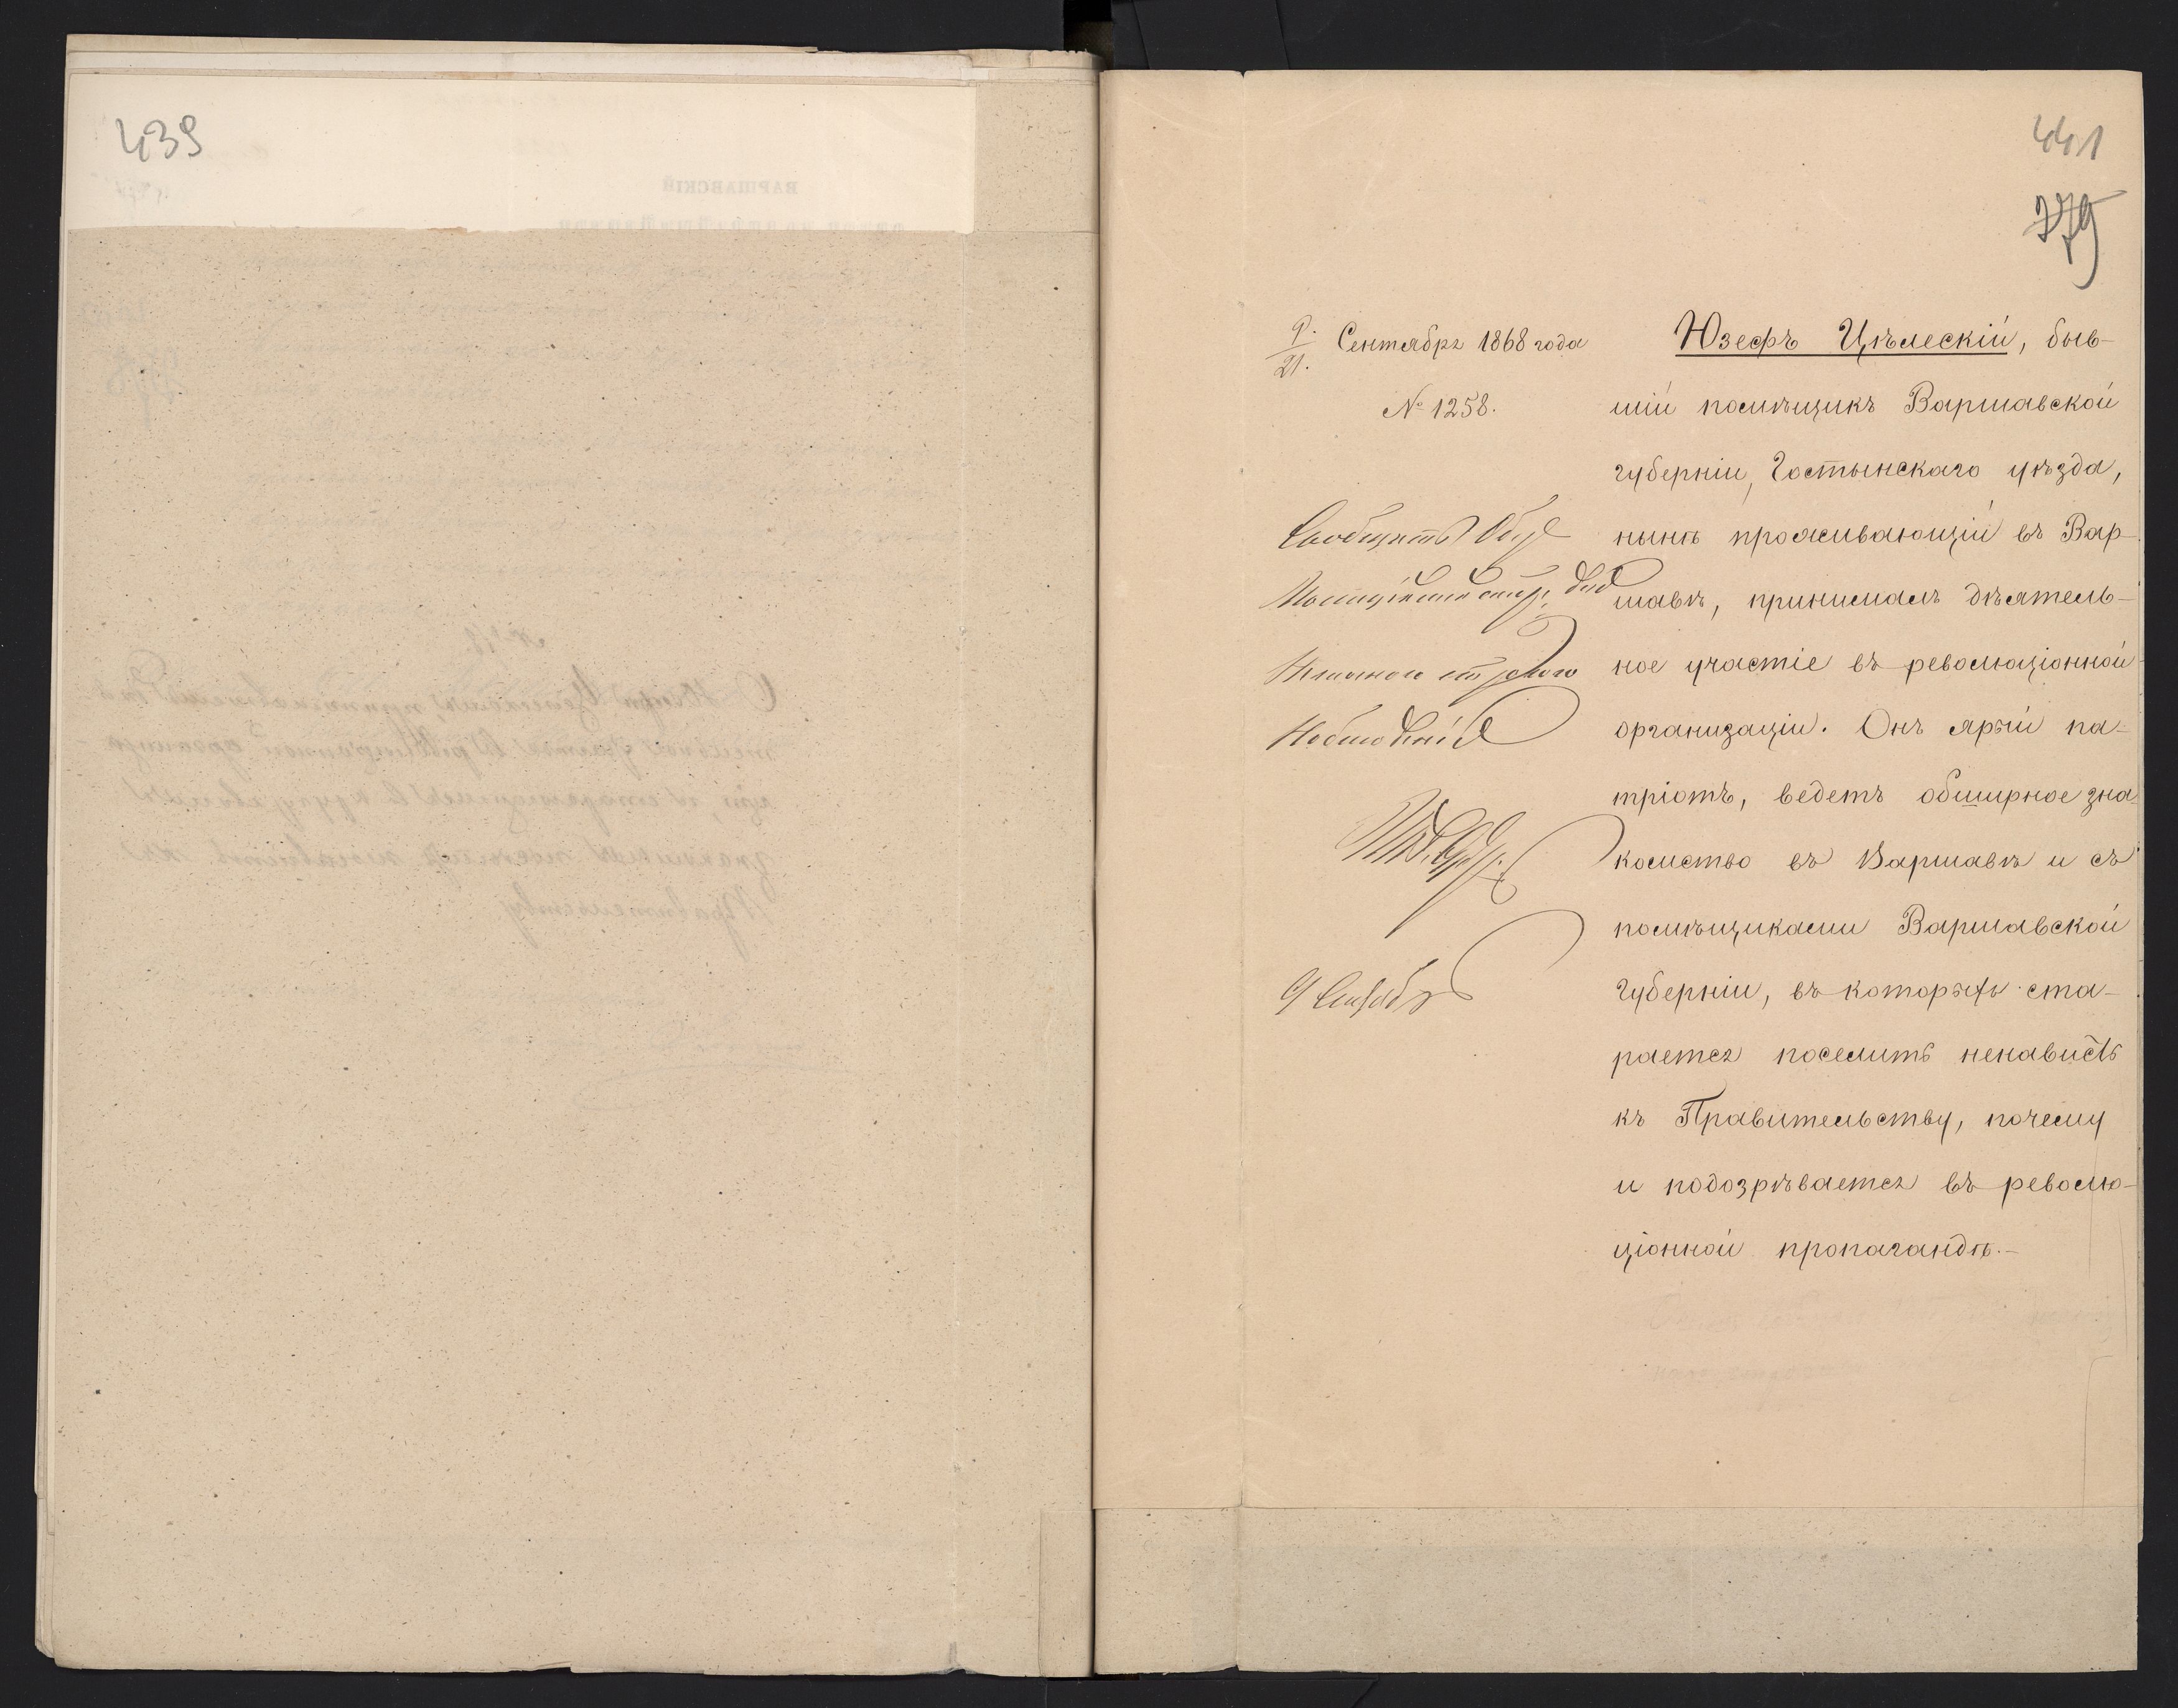 439
441
379
9./21. Сентября 1868 года
№ 1258.
Юзефъ Цѣлескій, быв-
шій помѣщикъ Варшавской
губерніи, Гостынскаго уѣзда,
нынѣ проживающій въ Вар-
шавѣ, принималъ дѣятель-
ное участіе въ революціонной
организаціи. Онъ ярый па-
тріотъ, ведетъ обширное зна-
комство въ Варшавѣ и съ
помѣщиками Варшавской
губерніи, въ которыхъ ста-
рается поселить ненависть
къ Правительству, почему
и подозрѣвается въ револю-
ціонной пропагандѣ.-
Сообщить
наблюденія
9 Сентября